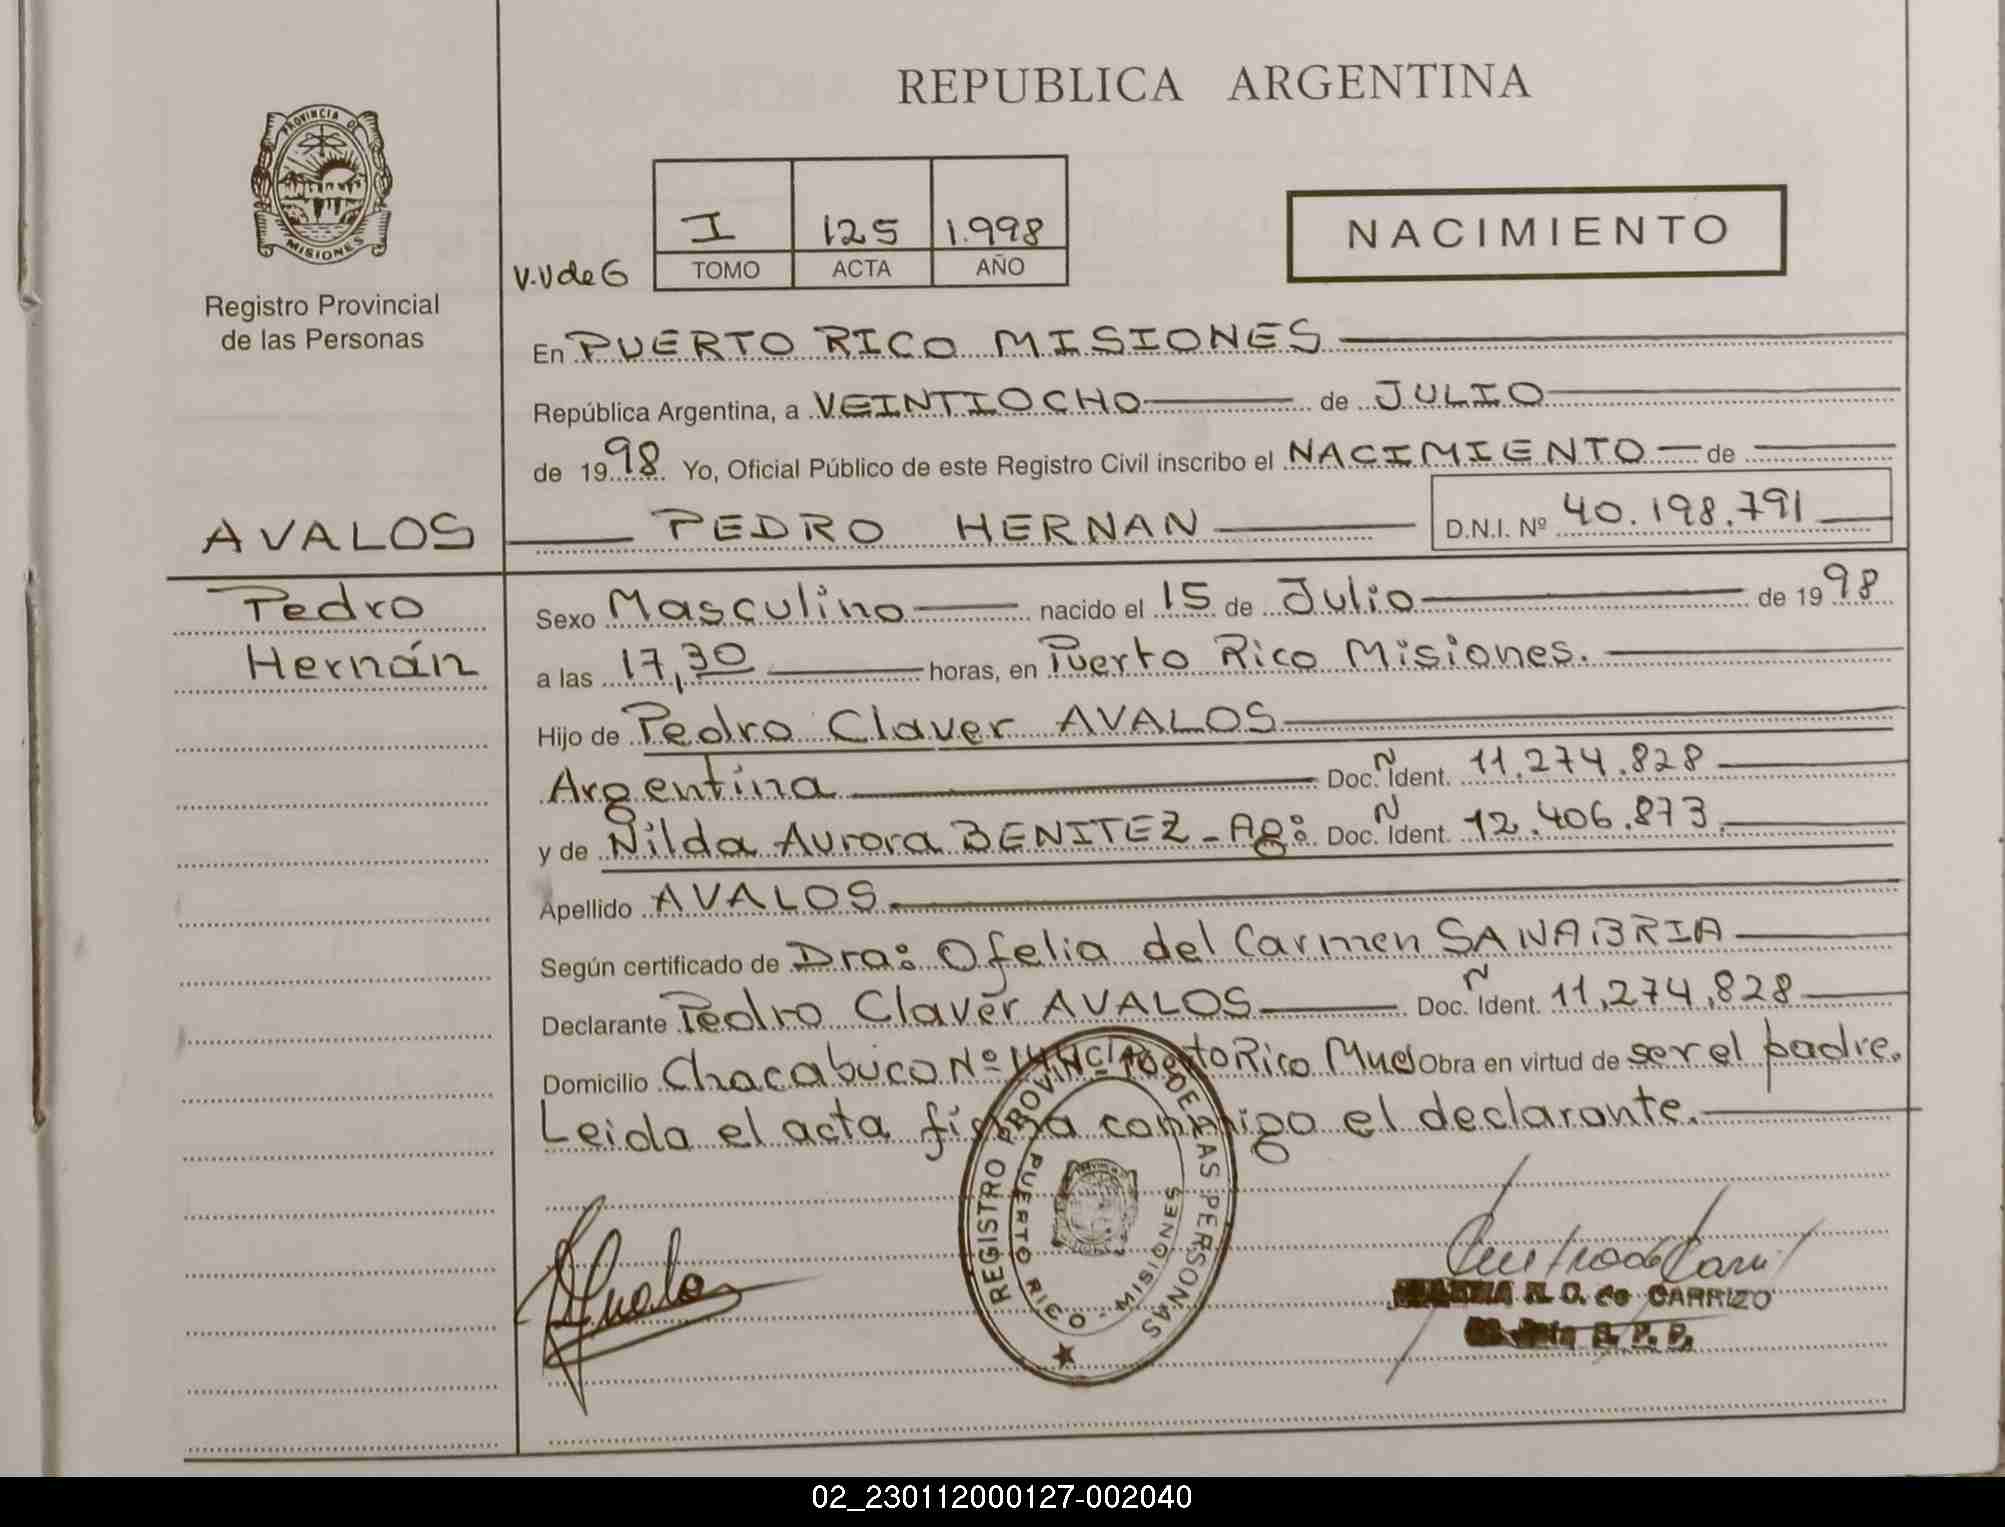 REPUBLICA ARGENTINA
PROVINCIA DE
MISIONES
Registro Provincial
de las Personas
V.V de G
I 125 1.998
TOMO ACTA AÑO
NACIMIENTO
En PUERTO RICO MISIONES
República Argentina, a VEINTIOCHO de JULIO
de 1998 Yo, Oficial Público de este Registro Civil inscribo el NACIMIENTO de
AVALOS PEDRO HERNAN D.N.I. Nº 40.198.791
Pedro
Hernán
Sexo Masculino nacido el 15 de Julio de 1998
a las 17,30 horas, en Puerto Rico Misiones.
Hijo de Pedro Claver AVALOS
Argentina Doc. Ñ Ident. 11.274.828
y de Nilda Aurora BENITEZ - Ag: Doc. Ñ Ident. 12.406.873
Apellido AVALOS
Según certificado de Dra: Ofelia del Carmen SANABRIA
Declarante Pedro Claver AVALOS Doc. Ñ Ident. 11,274,828
Domicilio Chacabuco Nº Rico Obra en virtud de ser el padre.
Leida el acta firma conmigo el declarante.
REGISTRO PROVINCIAL DE LAS PERSONAS
PUERTO RICO - MISIONES
de CARRIZO
R. P. P.
02_230112000127-002040